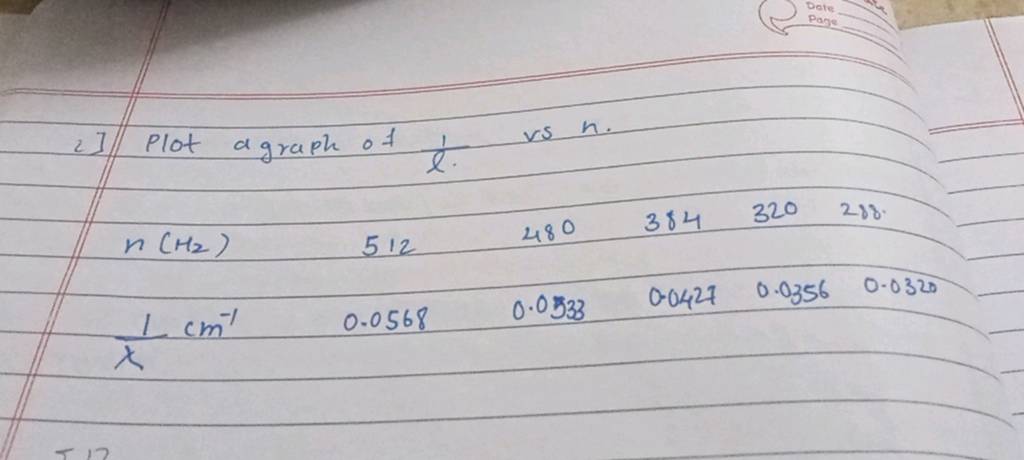 Date
Page
2] Plot a graph of 1/l. vs n.
n (Hz) 512 480 384 320 288.
1/λ cm⁻¹ 0.0568 0.0533 0.0427 0.0356 0.0320